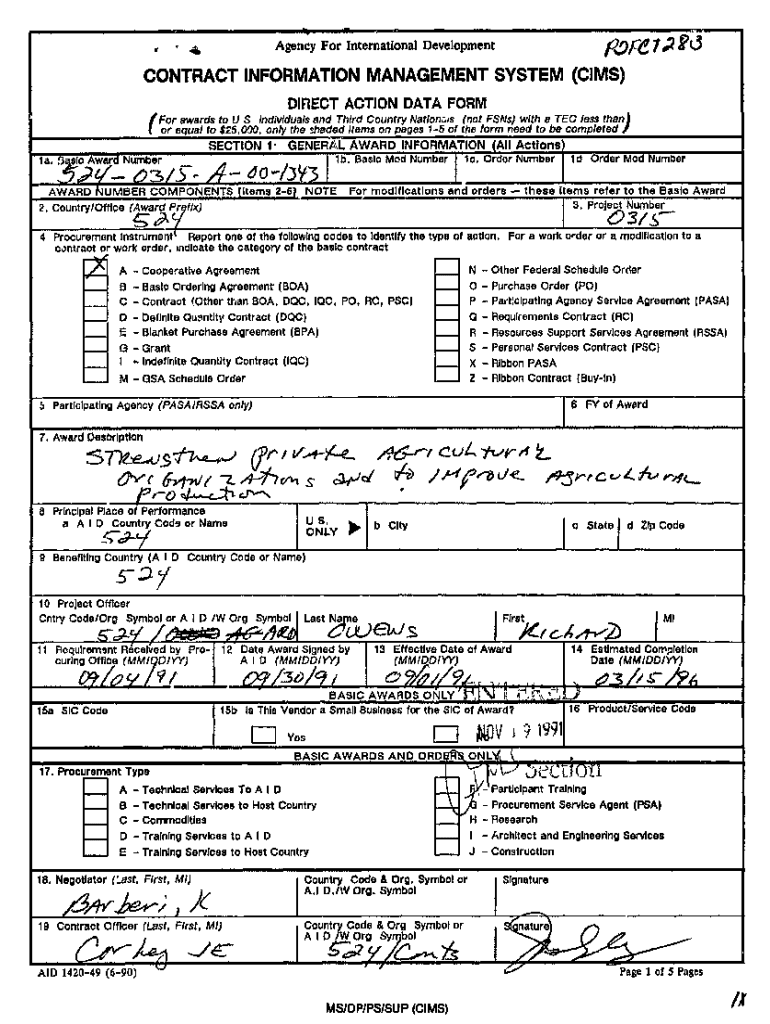 Agency For International Development
PDFCT283
CONTRACT INFORMATION MANAGEMENT SYSTEM (CIMS)
DIRECT ACTION DATA FORM
(For awards to U S individuals and Third Country Nationals (not FSNs) with a TEC less than
or equal to $25,000, only the shaded items on pages 1-5 of the form need to be completed)
SECTION 1· GENERAL AWARD INFORMATION (All Actions)
1a. Basic Award Number 1b. Basic Mod Number 1c. Order Number 1d Order Mod Number
524-0315-A-00-1343
AWARD NUMBER COMPONENTS (Items 2-6) NOTE For modifications and orders — these items refer to the Basic Award
2. Country/Office (Award Prefix) 3. Project Number
524 0315
4 Procurement Instrument Report one of the following codes to identify the type of action. For a work order or a modification to a
contract or work order, indicate the category of the basic contract
X A - Cooperative Agreement
B - Basic Ordering Agreement (BOA)
C - Contract (Other than BOA, DQC, IQC, PO, RC, PSC)
D - Definite Quantity Contract (DQC)
E - Blanket Purchase Agreement (BPA)
G - Grant
I - Indefinite Quantity Contract (IQC)
M - GSA Schedule Order
N - Other Federal Schedule Order
O - Purchase Order (PO)
P - Participating Agency Service Agreement (PASA)
Q - Requirements Contract (RC)
R - Resources Support Services Agreement (RSSA)
S - Personal Services Contract (PSC)
X - Ribbon PASA
Z - Ribbon Contract (Buy-in)
5 Participating Agency (PASA/RSSA only) 6 FY of Award
7. Award Description
STRengthen Private AGricuLturaL
OrIGANIZAtions and to IMprove Agricultural
Production
8 Principal Place of Performance
a A I D Country Code or Name U S. ONLY b City c State d Zip Code
524
9 Benefiting Country (A I D Country Code or Name)
524
10 Project Officer
Cntry Code/Org Symbol or A I D /W Org Symbol Last Name First MI
524/ AGARD OWENS RichARD
11 Requirement Received by Pro- 12 Date Award Signed by 13 Effective Date of Award 14 Estimated Completion
curing Office (MM/DD/YY) A I D (MM/DD/YY) (MM/DD/YY) Date (MM/DD/YY)
09/04/91 09/30/91 09/01/91 03/15/96
BASIC AWARDS ONLY ENTERED
15a SIC Code 15b Is This Vendor a Small Business for the SIC of Award? 16 Product/Service Code
Yes NOV 19 1991
BASIC AWARDS AND ORDERS ONLY
Section
17. Procurement Type
A - Technical Services To A I D
B - Technical Services to Host Country
C - Commodities
D - Training Services to A I D
E - Training Services to Host Country
F - Participant Training
G - Procurement Service Agent (PSA)
H - Research
I - Architect and Engineering Services
J - Construction
18. Negotiator (Last, First, MI) Country Code & Org. Symbol or Signature
A.I D./W Org. Symbol
BArberi, K
19 Contract Officer (Last, First, MI) Country Code & Org Symbol or Signature
A I D /W Org Symbol
Corley JE 524/Conts
AID 1420-49 (6-90) Page 1 of 5 Pages
MS/OP/PS/SUP (CIMS)